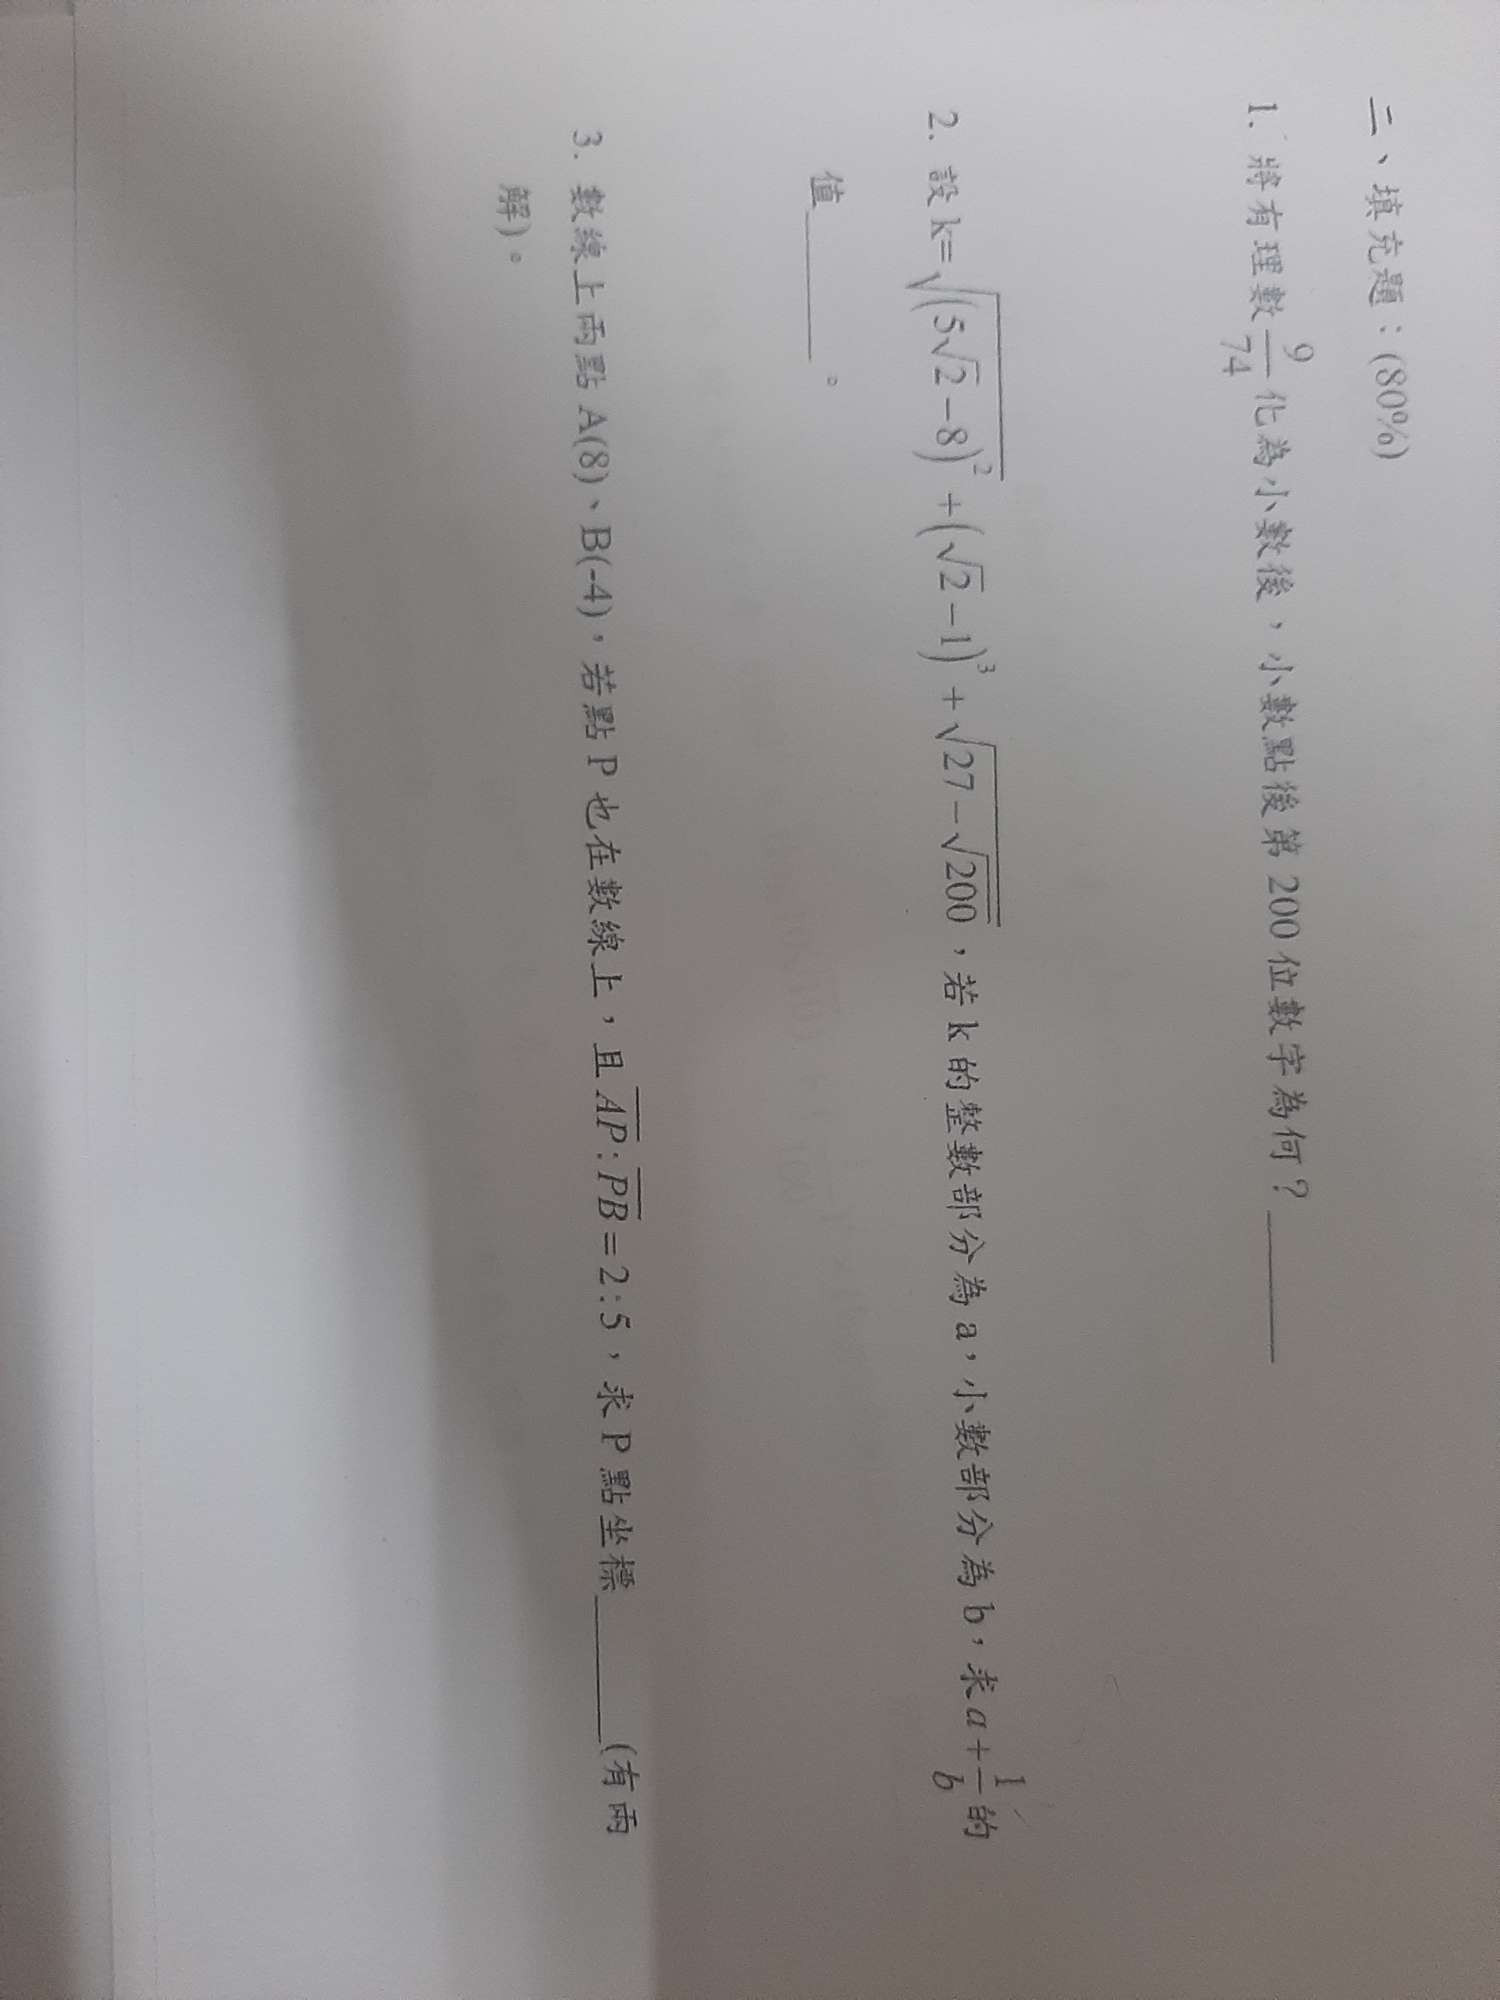 二、填充題：(80%)
1. 將有理數 9/74 化為小數後，小數點後第 200 位數字為何？______
2. 設 k=√((5√2−8)²)+(√2−1)³+√(27−√200)，若 k 的整數部分為 a，小數部分為 b，求 a+1/b 的
值______。
3. 數線上兩點 A(8)、B(-4)，若點 P 也在數線上，且 A̅P̅:P̅B̅=2:5，求 P 點坐標______(有兩
解)。